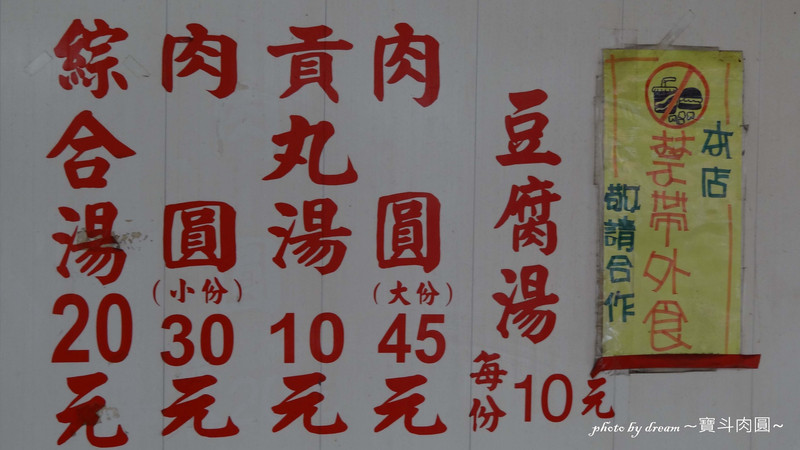 本店
禁帶外食
敬請合作
豆腐湯
每份10元
肉圓(大份)45元
貢丸湯10元
肉圓(小份)30元
綜合湯20元
photo by dream～寶斗肉圓～